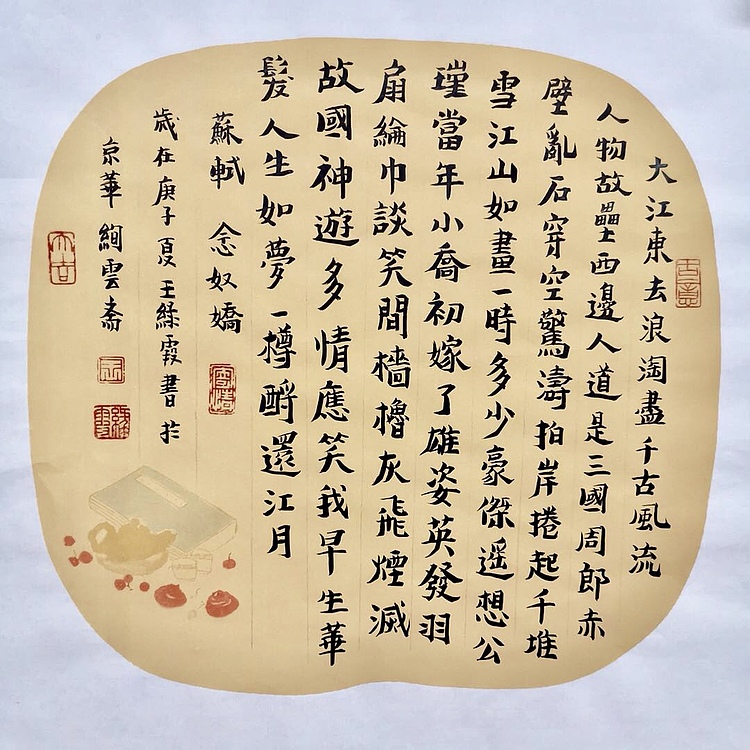 古意
大江東去浪淘盡千古風流
人物故壘西邊人道是三國周郎赤
壁亂石穿空驚濤拍岸捲起千堆
雪江山如畫一時多少豪傑遥想公
瑾當年小喬初嫁了雄姿英發羽
扇綸巾談笑間檣櫓灰飛煙滅
故國神遊多情應笑我早生華
髮人生如夢一樽酹還江月
蘇軾 念奴嬌
歲在庚子夏王綵霞書扵
京華絢雲齋
大吉